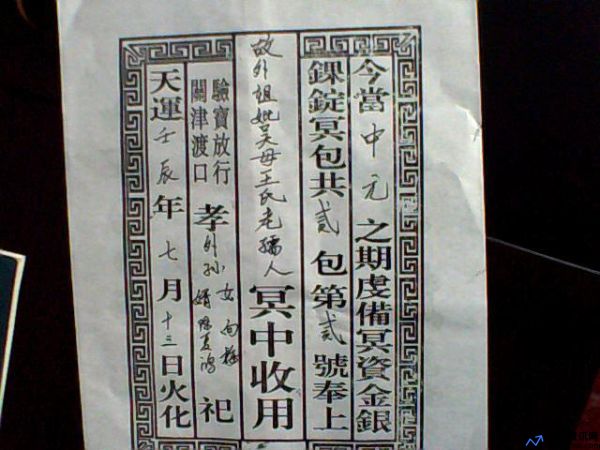 今當中元之期虔備冥資金銀
錁錠冥包共貳包第貳號奉上
故外祖妣吴母王氏老孺人冥中收用
驗實放行
關津渡口
孝外孙女婿祀
天運壬辰年七月十三日火化